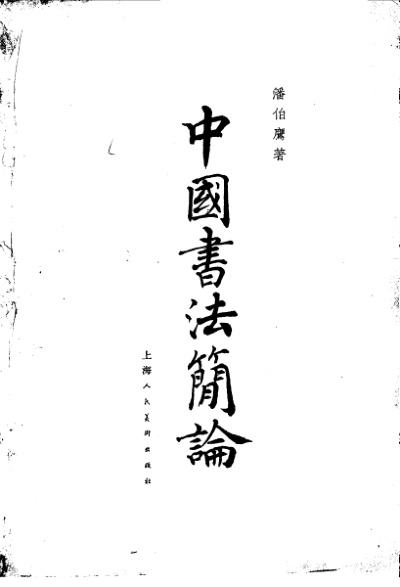 潘伯鹰著
中國書法簡論
上海人民美術出版社